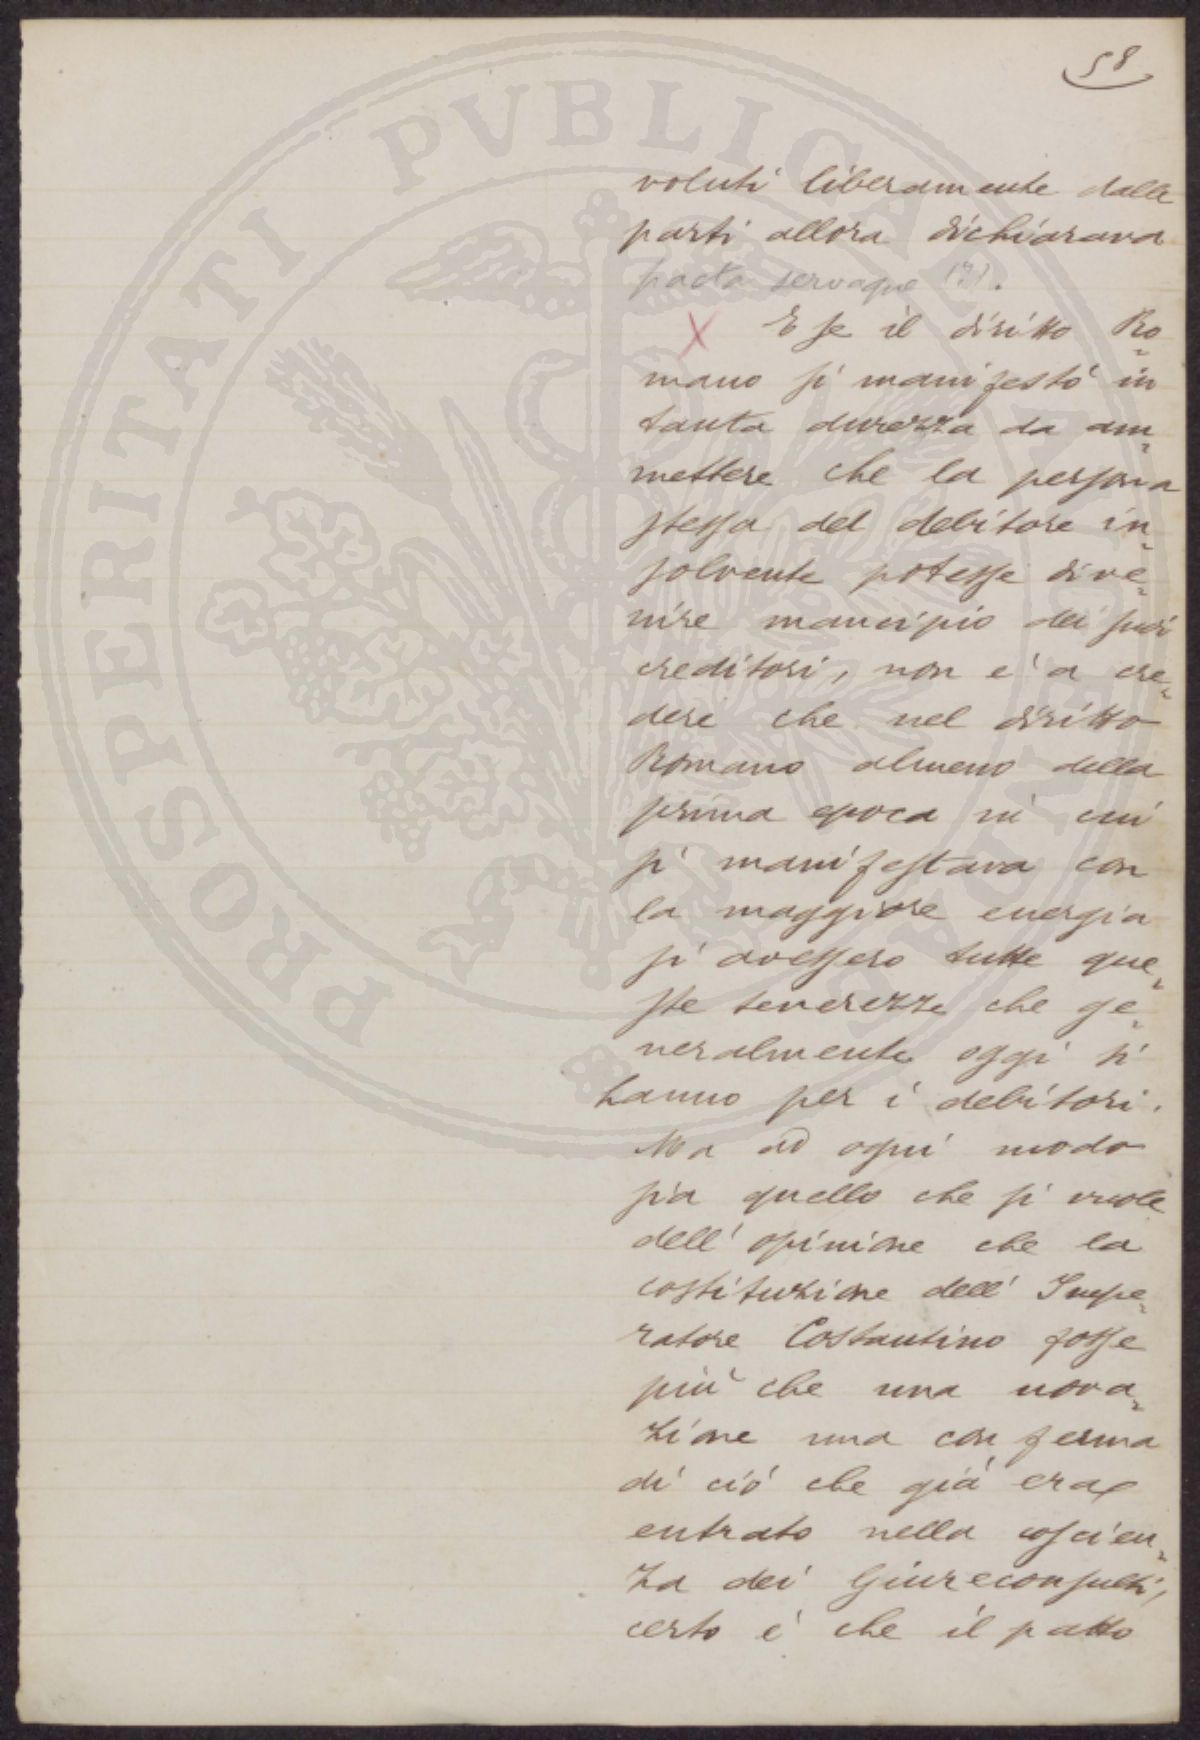 58
voluti liberamente dalle
parti allora dichiarava
pacta servaque (?).
X E se il diritto Ro„
mano si manifestó in
tanta durezza da am„
mettere che la persona
stessa del debitore in„
solvente potesse dive„
nire mancipio dei suoi
creditori, non é a cre„
dere che nel diritto
Romano almeno della
prima epoca in cui
si manifestava con
la maggiore energia
si avessero tutte que„
ste tenerezze che ge„
neralmente oggi si
hanno per i debitori.
Ma ad ogni modo
sia quello che si vuole
dell' opinione che la
costituzione dell' Impe„
ratore Costantino fosse
piú che una nova„
zione una conferma
di ció che giá era
entrato nella coscien„
za dei Giureconsulti,
certo é che il patto
PROSPERITATI PVBLICAE AVGENDAE